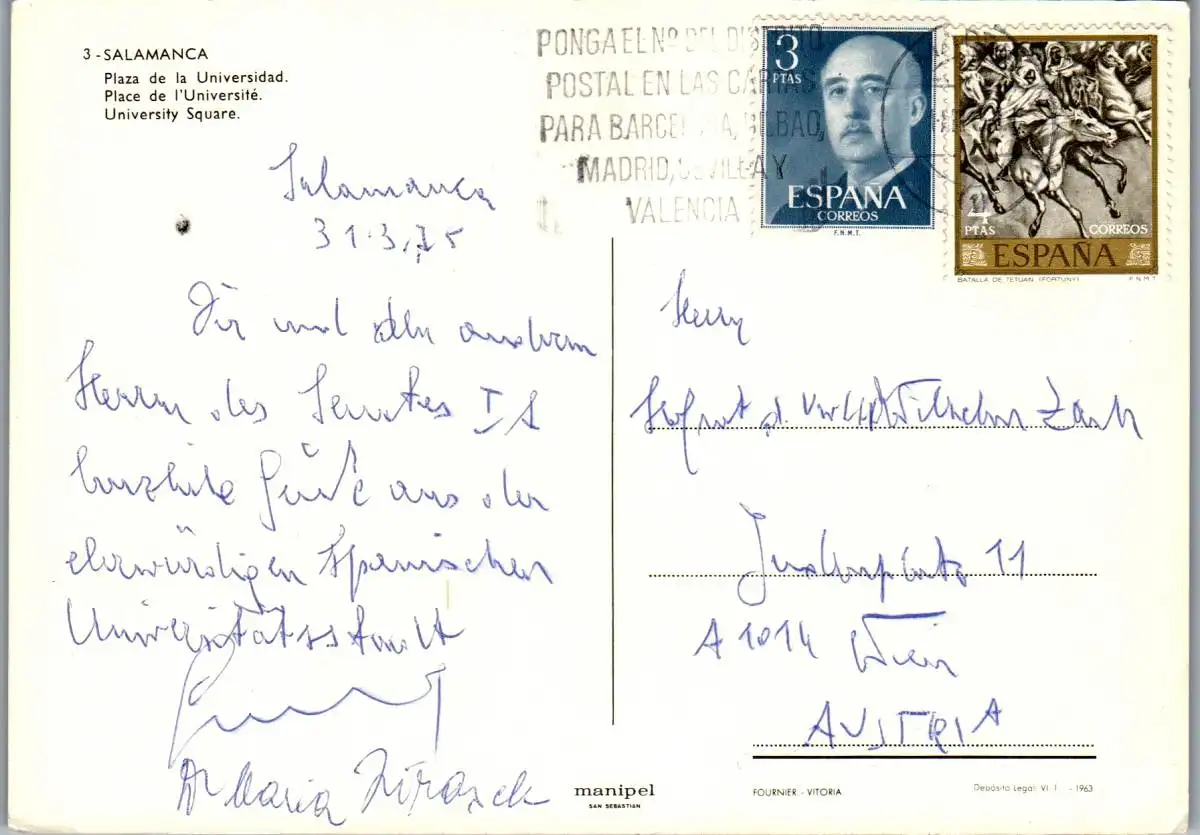 3 - SALAMANCA
Plaza de la Universidad.
Place de l'Université.
University Square.
PONGA EL Nº DEL DISTRITO
POSTAL EN LAS CARTAS
PARA BARCELONA, BILBAO,
MADRID, SEVILLA Y
VALENCIA
3
PTAS
ESPAÑA
CORREOS
F.N.M.T.
4
PTAS
CORREOS
ESPAÑA
BATALLA DE TETUAN (FORTUNY)
F N M T
Salamanca
31.3.75
Dir und den anderen
Herrn des Senates
herzliche Grüße aus der
ehrwürdigen spanischen
Universitätsstadt
Dr Maria
Herrn
Hofrat d. Wilhelm
Judenplatz 11
A 1014 Wien
AUSTRIA
manipel
SAN SEBASTIAN
FOURNIER - VITORIA
Depósito Legal: VI. - 1963